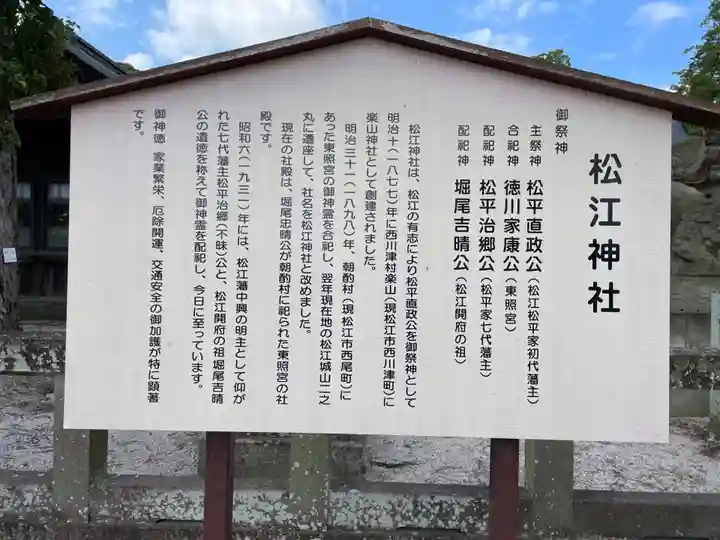 松江神社
御祭神
主祭神 松平直政公(松江松平家初代藩主)
合祀神 徳川家康公(東照宮)
配祀神 松平治郷公(松平家七代藩主)
配祀神 堀尾吉晴公(松江開府の祖)
松江神社は、松江の有志により松平直政公を御祭神として
明治十(一八七七)年に西川津村楽山(現松江市西川津町)に
楽山神社として創建されました。
明治三十一(一八九八)年、朝酌村(現松江市西尾町)に
あった東照宮の御神霊を合祀し、翌年現在地の松江城山二之
丸に遷座して、社名を松江神社と改めました。
現在の社殿は、堀尾忠晴公が朝酌村に祀られた東照宮の社
殿です。
昭和六(一九三一)年には、松江藩中興の明主として仰が
れた七代藩主松平治郷(不昧)公と、松江開府の祖堀尾吉晴
公の遺徳を称えて御神霊を配祀し、今日に至っています。
御神徳 家業繁栄、厄除開運、交通安全の御加護が特に顕著
です。